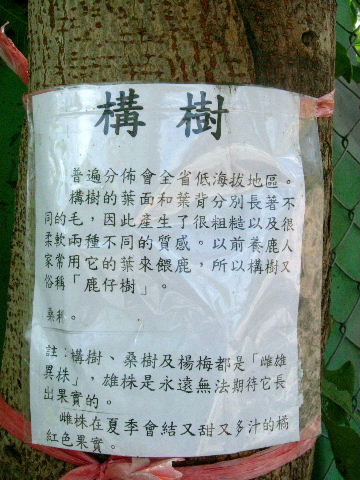 構樹
普遍分佈會全省低海拔地區。
構樹的葉面和葉背分別長著不
同的毛,因此產生了很粗糙以及很
柔軟兩種不同的質感。以前養鹿人
家常用它的葉來餵鹿,所以構樹又
俗稱「鹿仔樹」。
桑科。
註:構樹、桑樹及楊梅都是「雌雄
異株」,雄株是永遠無法期待它長
出果實的。
雌株在夏季會結又甜又多汁的橘
紅色果實。